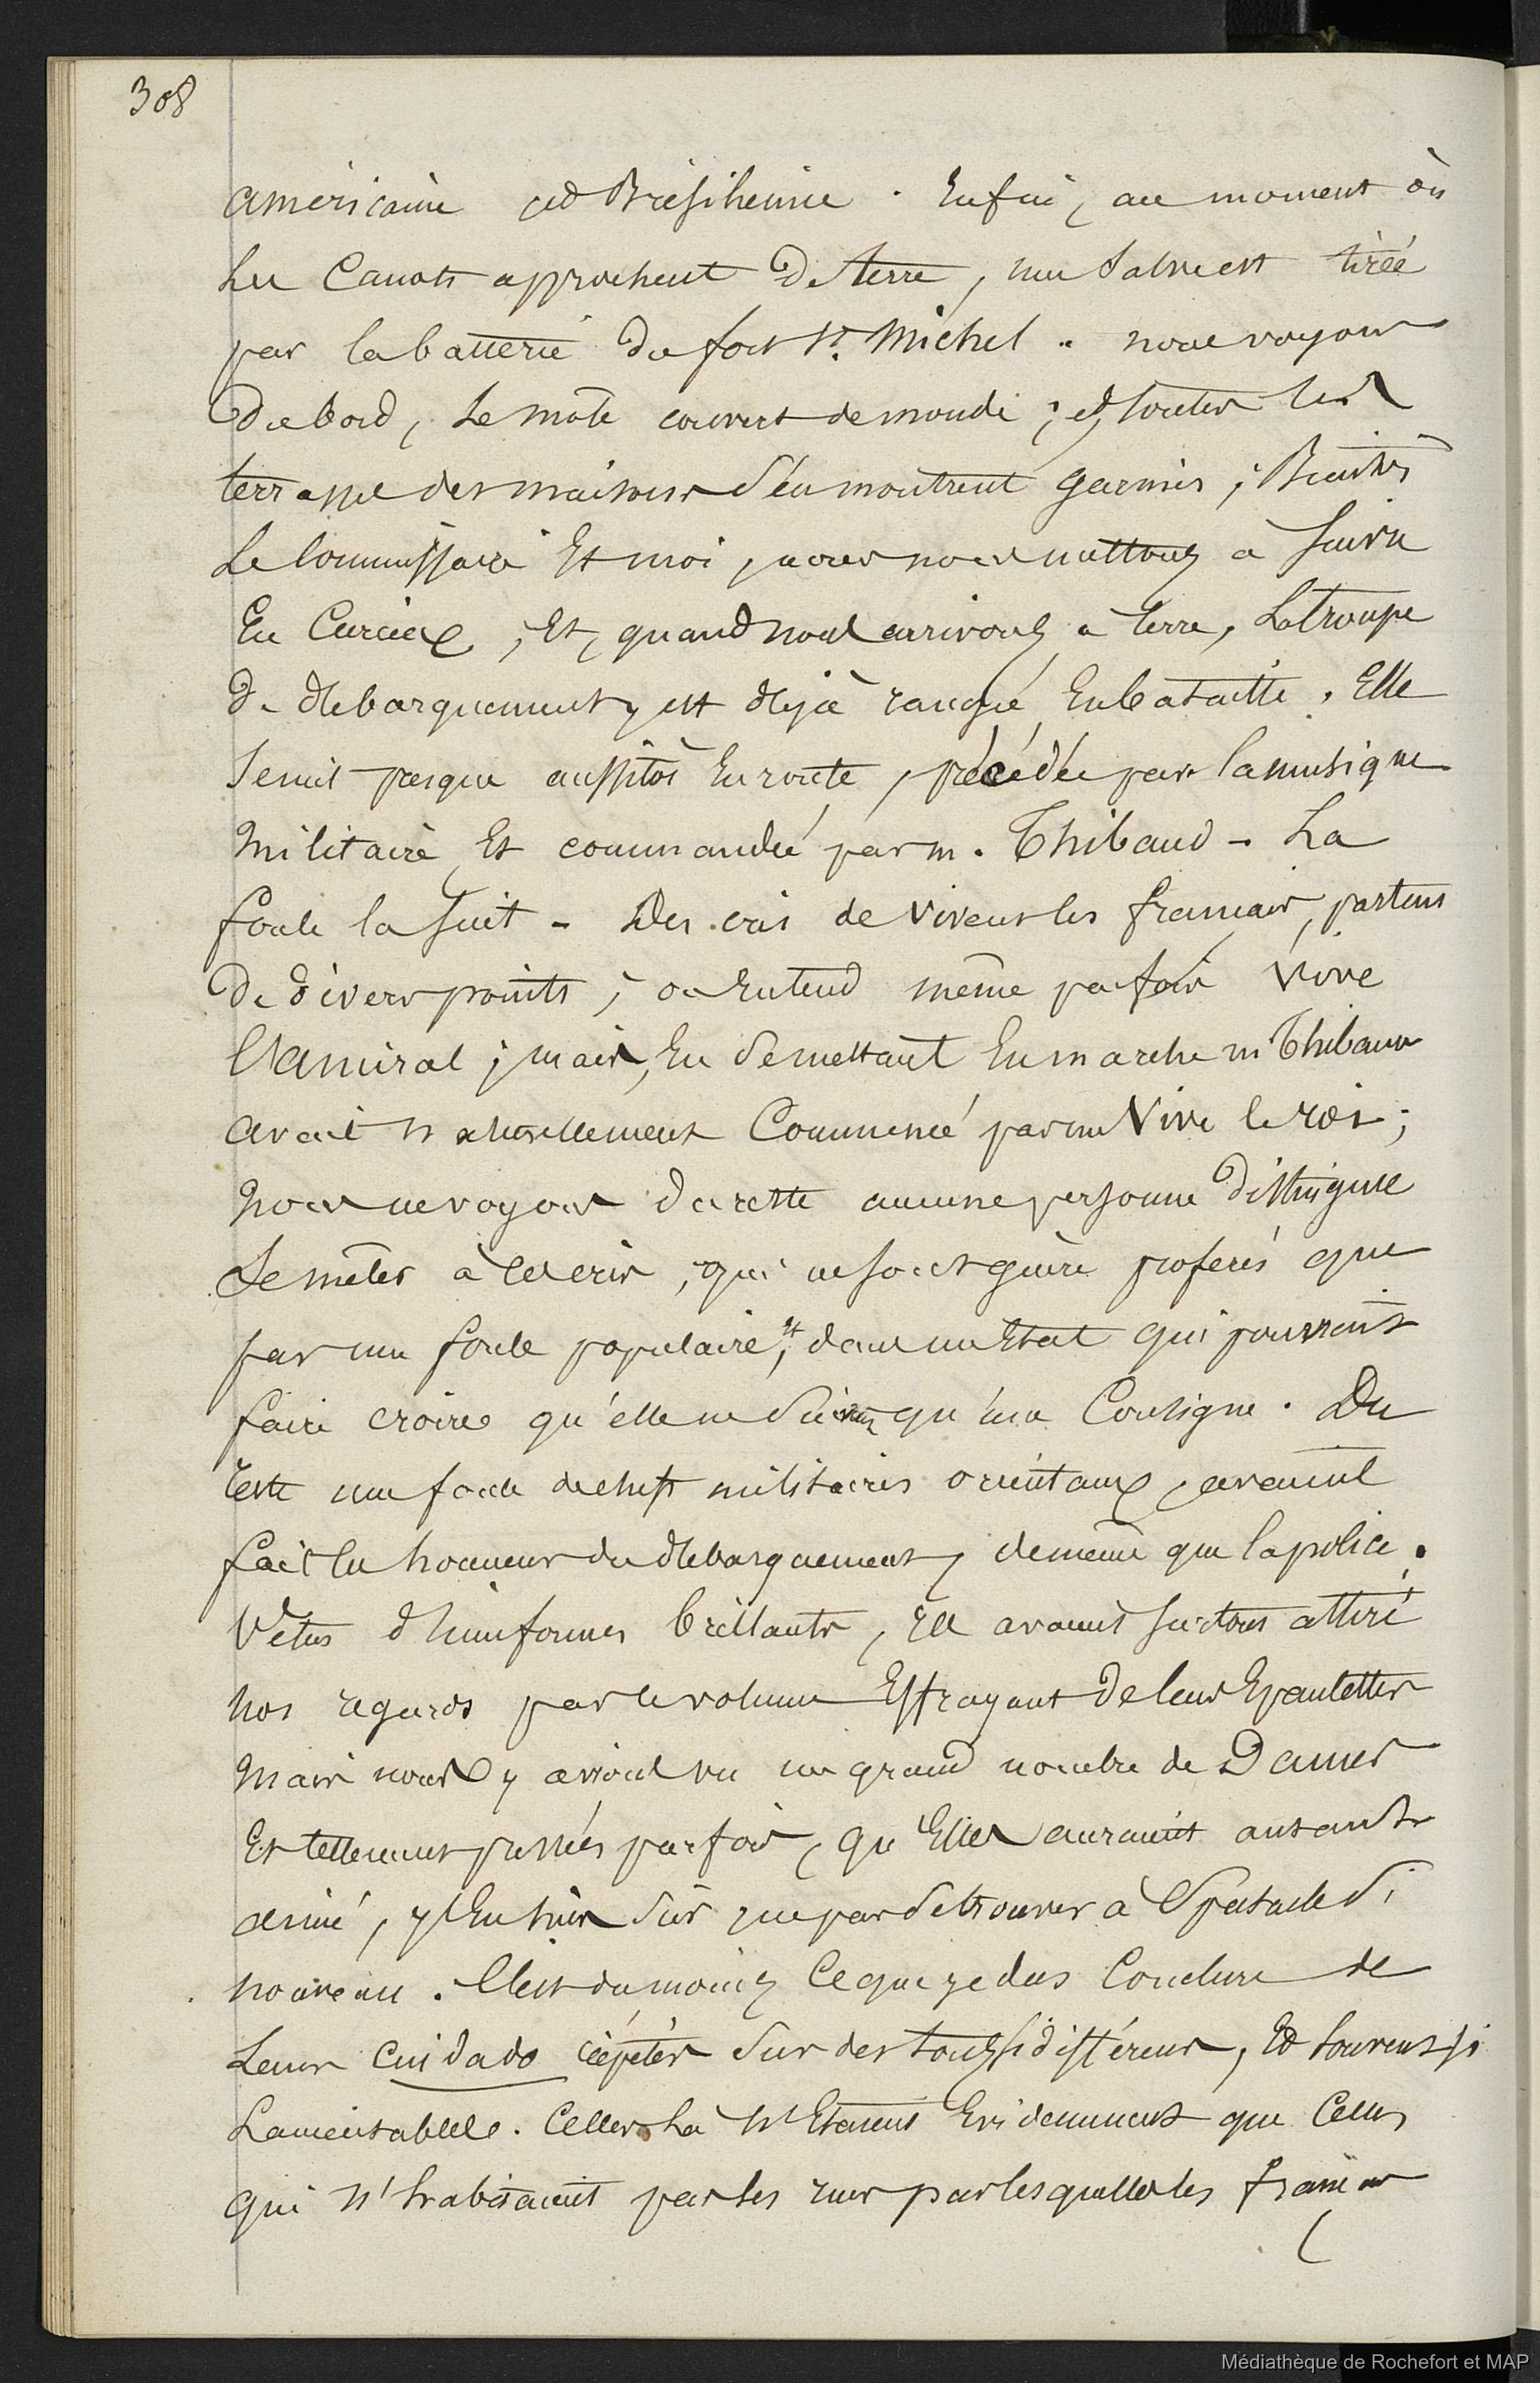 308
américaine et Brésilienne. Enfin, au moment où
les Canots approchent de terre, une salve est tirée
par la batterie du fort St. Michel. nous voyons
du bord, le môle couvert de monde; et, toutes les
terrasses des maisons s'en montrent garnies;
Le Commissaire Et moi, nous nous mettons à suivre
En Curieux, Et, quand nous arrivons à terre, La troupe
de debarquement y est déjà rangée En bataille. Elle
se mit presque aussitôt En route, précédée par la musique
Militaire Et commandée par m. Thibaud - La
foule la suit - Des cris de vivent les français, partent
De divers points; on Entend même parfois vive
l'Amiral; mais, En se mettant En marche m Thibaud
avait naturellement Commencé par un Vive le roi;
nous ne voyons du reste aucune personne distinguée
se mêler à ces cris, qui ne sont guère proferés que
par une foule populaire, et dans un Etat qui pourrait
faire croire qu'elle ne suivait qu'une Consigne. Du
reste une foule de chefs militaires orientaux, avaient
fait les honneurs du debarquement, de même que la police.
Vêtus d'huniformes brillants, Ils avaient surtout attiré
nos regards par le volume Effrayant de leurs Epaulettes
Mais nous y avions vu un grand nombre de Dames
Et tellement pressées parfois, qu'Elles auraient autant
aimé, s'En tenir que par se trouver à Spectacle si
nouveau. C'est du moins Ce que je dus Conclure de
Leurs cuidado répétés sur des tons si différens, Et souvent si
Lamentables. Celles Là n'Etaient Evidemment que Celles
qui n'habitaient pas les rues par lesquelles les français
Médiathèque de Rochefort et MAP